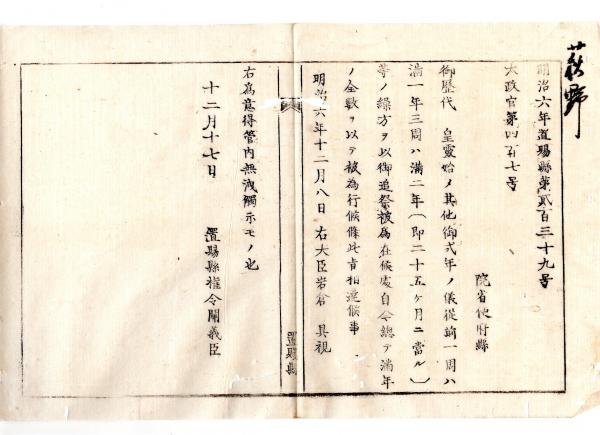 荻野
明治六年置賜縣第貳百三十九号
太政官第四百七号
院省使府縣
御歴代 皇霊始メ其他御式年ノ儀従前一周ハ
満一年三周ハ満二年〔即二十五ケ月ニ當ル〕
等ノ繰方ヲ以御追祭被為在候處自今總テ満年
ノ全数ヲ以テ被為行候條此旨相達候事
明治六年十二月八日 右大臣岩倉 具視
置賜縣
右為意得管内無洩觸示モノ也
十二月十七日 置賜縣権令關義臣